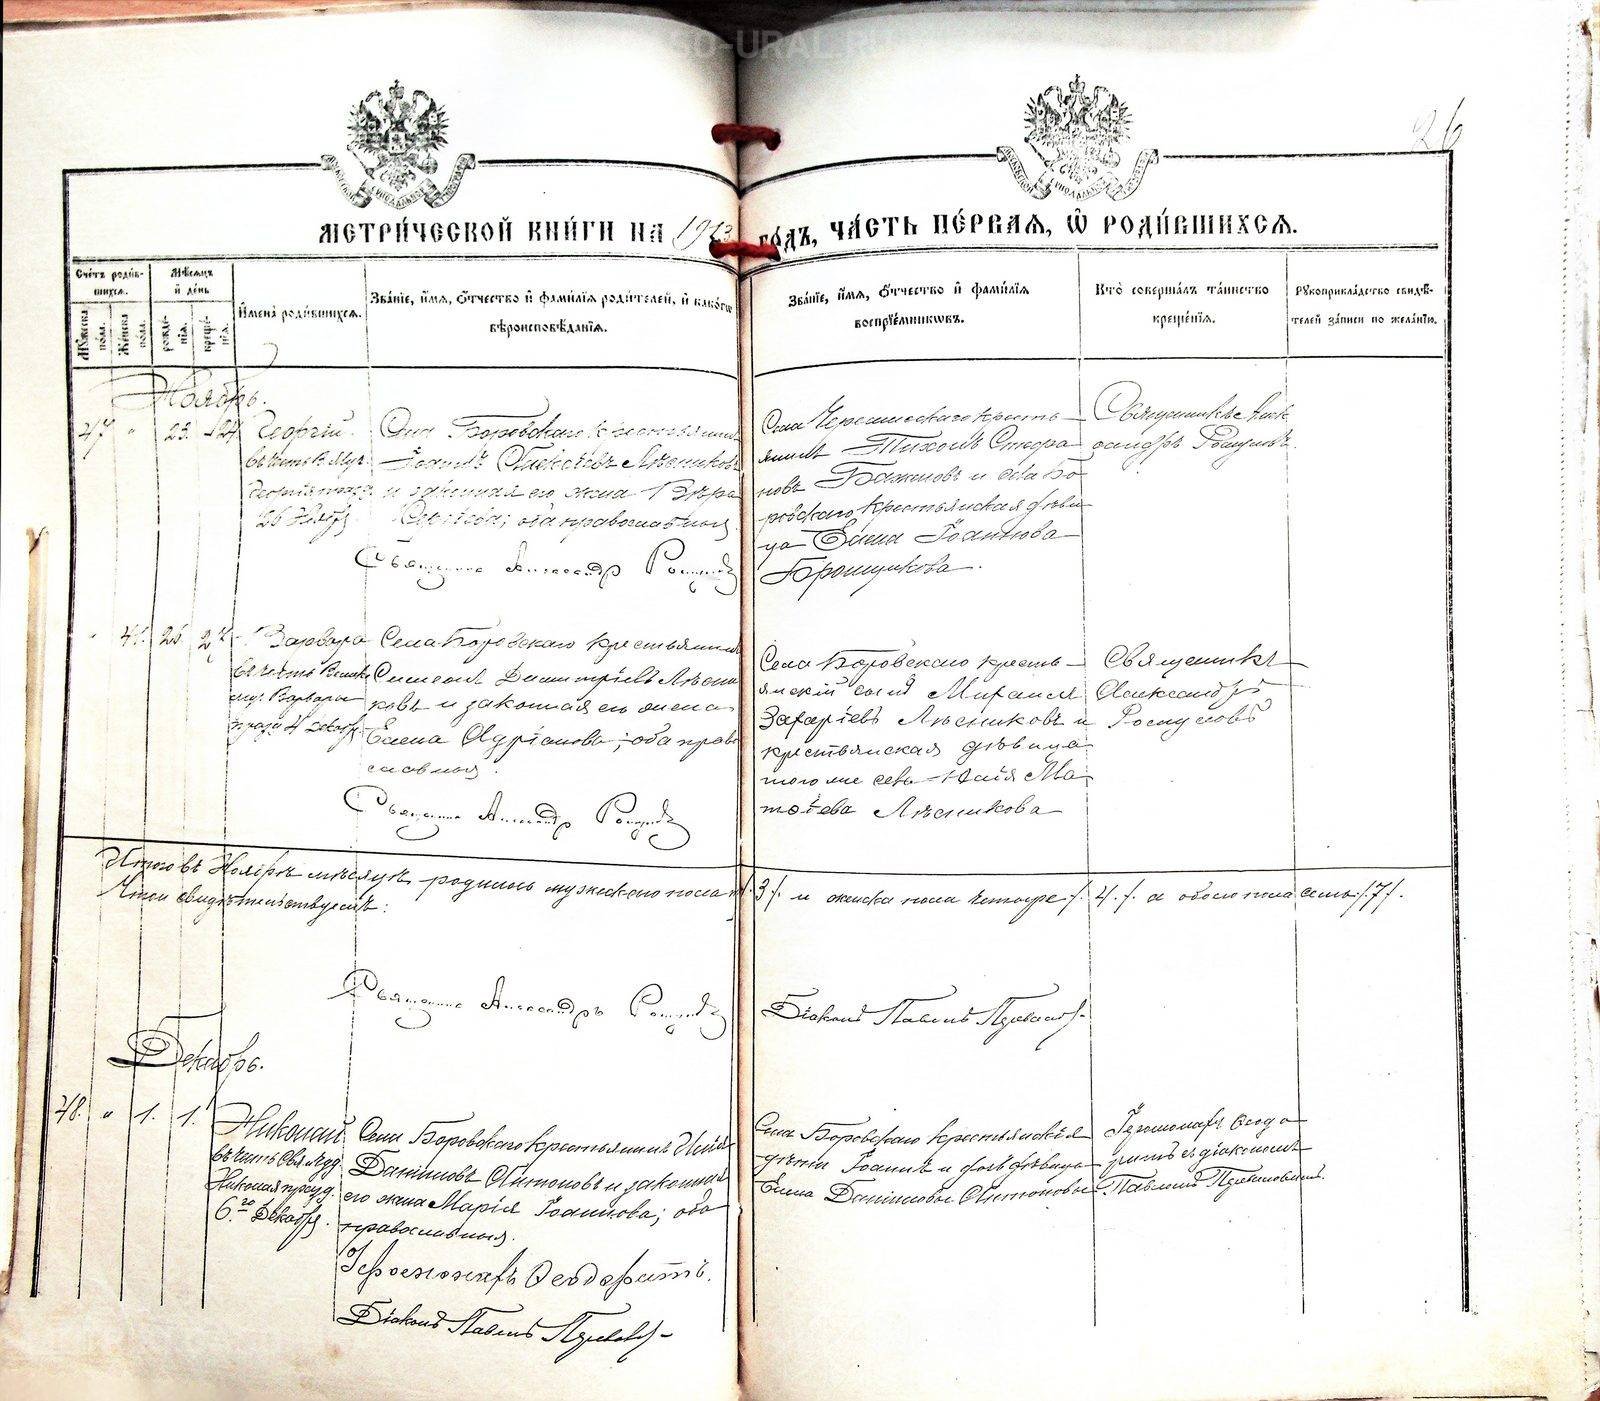 SO-URAL.RU
26
МЕТРИ́ЧЕСКОЙ КНИ́ГИ НА 1913 го́дъ, ЧА́СТЬ ПЕ́РВАЯ, Ѽ РОДИ́ВШИХСЯ.
Сче́тъ роди́в-
шихся.
Мѣ́сяцъ
и҆ де́нь
Мꙋ́жеска
по́ла.
Же́нска
по́ла.
рожде́-
нїя.
креще́-
нїя.
И҆мена̀ роди́вшихся.
Зва́нїе, и҆́мя, ѻ҆́тчество и҆ фами́лїя роди́телей, и҆ како́гѡ
вѣроисповѣ́данїя.
Зва́нїе, и҆́мя, ѻ҆́тчество и҆ фами́лїя
воспрїе́мникѡвъ.
Кто̀ соверша́лъ та́инство
креще́нїя.
Рꙋкоприкла́дство свидѣ́-
телей за́писи по жела́нїю.
Ноябрь.
47 " 23. 24
Георгій
въ честь В. Муч.
Георгія
26 Нояб.
Села Боровскаго крестьянинъ
Іоаннъ Алексѣевъ Лѣсниковъ
и законная его жена Вѣра
Сергѣева; оба православныя
Священникъ Александръ
Села крестья-
нинъ Тихонъ
новъ Баженовъ и села Бо
ровскаго крестьянская дѣви
ца Елена Іоаннова
Священникъ Алек
сандръ
" 41. 25 27
Варвара
въ честь Велик
муч. Варвары
празд. 4 декабр.
Села Боровскаго крестьянинъ
Симеонъ Димитріевъ Лѣсни
ковъ и законная его жена
Елена Адріанова; оба право
славныя.
Священникъ Александръ
Села Боровскаго кресть-
янскій сынъ Михаилъ
Захаріевъ Лѣсниковъ и
крестьянская дѣвица
того же села Ма
тѳеева Лѣсникова
Священникъ
Александръ
Итого въ Ноябрѣ мѣсяцѣ родилось мужеского пола /.3/. и женска пола четыре /.4./. а обоего пола семь /.7/.
свидѣтельствуемъ:
Священникъ Александръ
Діаконъ Павелъ
Декабрь.
48. " 1. 1.
Николай
въ честь Свят. Чуд
Николая празд.
6.го Декабря.
Села Боровскаго крестьянинъ
Даниловъ Антоновъ и законная
его жена Марія Іоаннова; оба
православныя.
Іеромонахъ Ѳеодоритъ.
Діаконъ Павелъ
Села Боровскаго крестьянскія
дѣти Іоаннъ и дѣвица
Елена Даниловы Антоновы
Іеромонахъ Ѳеодо
ритъ съ діакономъ
Павломъ